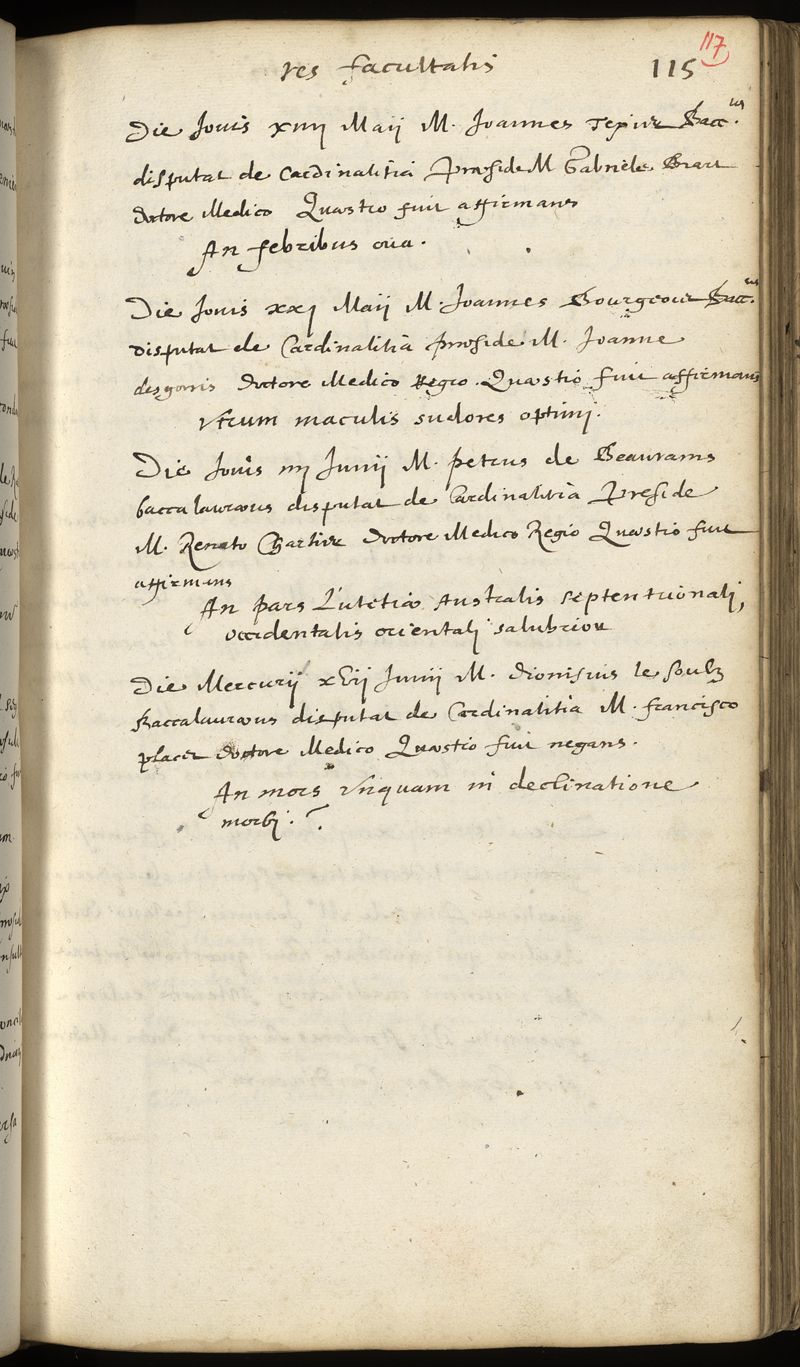 res facultatis 115 117
Die Jovis xiiij Maij M. Joannes Texier Bacc.us
disputat de Cardinalitia Præside M Gabriele
doctore Medico Quæstio fuit affirmans
An febribus ova.
Die Jovis xxj Maij M. Joannes Bourgeois Bacc.us
disputat de Cardinalitia præside M. Joanne
desgorris doctore Medico Regio. Quæstio fuit affirmans
Utrum maculis sudores optimj.
Die Jovis iiij Junij M. petrus de Beaurams
baccalauræus disputat de Cardinalitia Præside
M. Renato Chartier doctore Medico Regio Quæstio fuit
affirmans
An pars Lutetiæ Australis septentrionalj,
occidentalis orientalj salubrior
Die Mercurij xvij Junij M. Dionisius le Soubz
Baccalauræus disputat de Cardinalitia M. francisco
placet doctore Medico Quæstio fuit negans.
An mors unquam in declinatione
morbj. ?